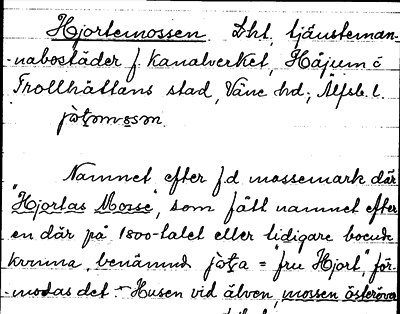 Hjortemossen. Lht, tjänsteman-
-nabostäder f. Kanalverket, Håjum ö
Trollhättans stad, Väne hd, Älfsb. l.
Namnet efter f.d mossemark där
"Hjortas Mosse", som fått namnet efter
en där på 1800-talet eller tidigare boende
kvinna, benämnd = "fru Hjort", för-
-modas det. - Husen vid älven, mossen österöver